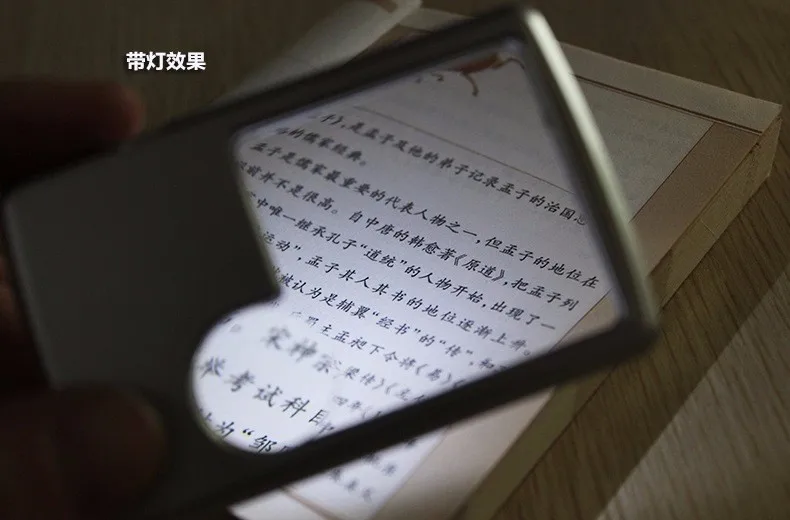 带灯效果
》,是孟子及他的弟子记录孟子的治国
的儒家经典。
孟子是儒家最重要的代表人物之一,但孟子的地位在
前并不是很高。自中唐的韩愈著《原道》,把孟子列
中唯一继承孔子“道统”的人物开始,出现了一
运动”,孟子其人其书的地位逐渐上升。
被认为是辅翼“经书”的“传”,和
主孟昶下令将《易》
宋神宗
梁传》《
举考试科目
为“邹